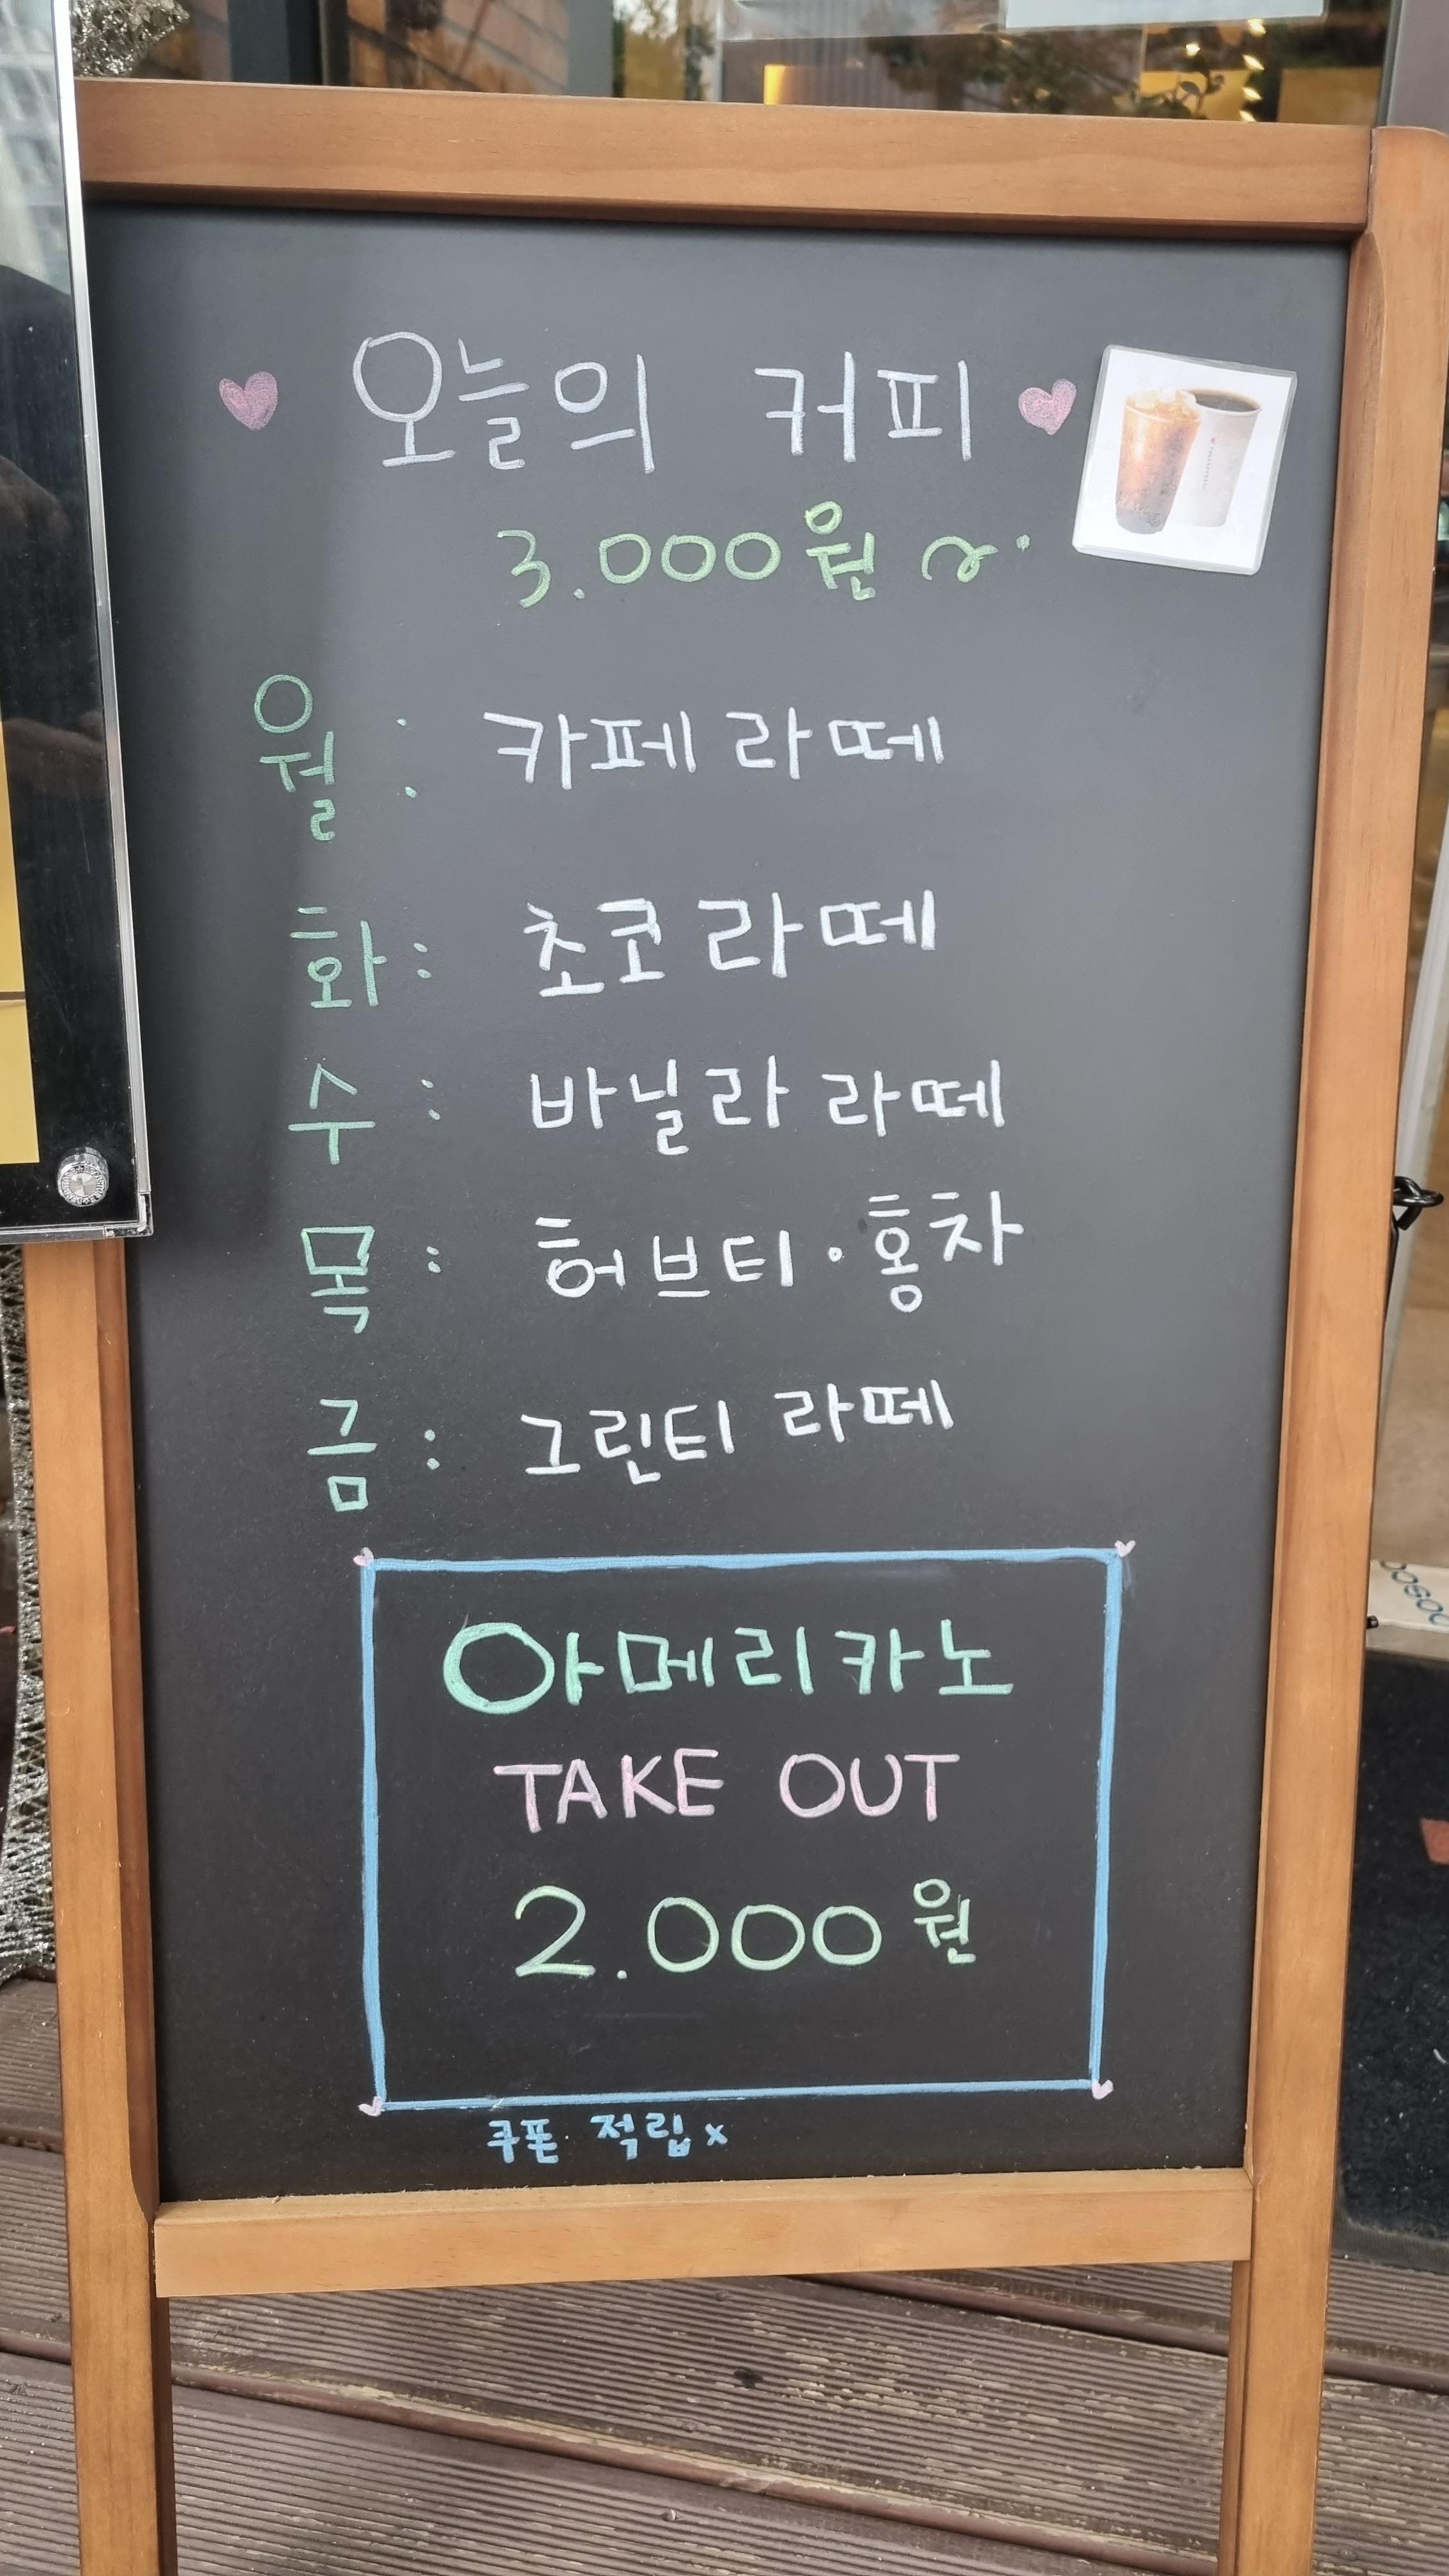 오늘의 커피
3.000원 ~
월 : 카페라떼
화 : 초코라떼
수 : 바닐라 라떼
목 : 허브티·홍차
금 : 그린티 라떼
아메리카노
TAKE OUT
2.000원
쿠폰 적립 x